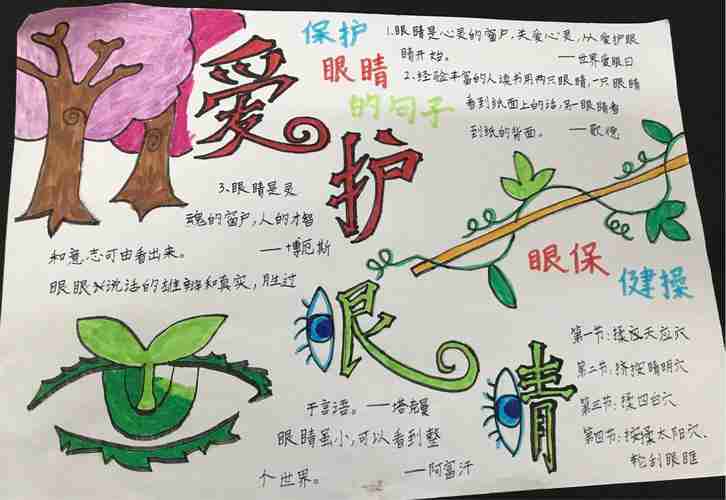 爱护
眼睛
保护
眼睛
的句子
1.眼睛是心灵的窗户,关爱心灵,从爱护眼
睛开始。——世界爱眼日
2.经验丰富的人读书用两只眼睛,一只眼睛
看到纸面上的话,另一眼睛看
到纸的背面。——歌德
3.眼睛是灵
魂的窗户,人的才智
和意志可由看出来。——博厄斯
眼眼对说话的雄辩和真实,胜过
于言语。——塔克曼
眼睛虽小,可以看到整
个世界。——阿富汗
眼保
健操
第一节:揉天应穴
第二节:挤按睛明穴
第三节:揉四白穴
第四节:按揉太阳穴,
轮刮眼眶